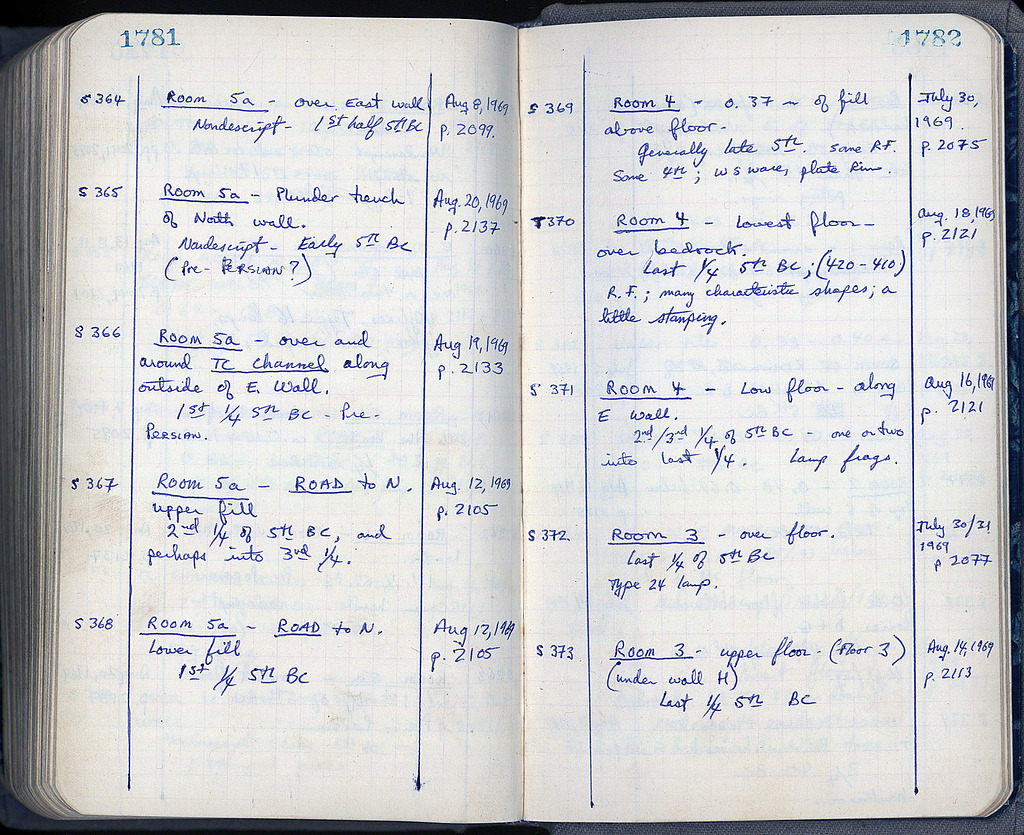 1781
S 364 Room 5a - over East wall Aug 8, 1969
Nondescript - 1st half 5th BC p. 2099.
S 365 Room 5a - Plunder trench Aug. 20, 1969
of North wall. p. 2137
Nondescript - Early 5th BC
(Pre-PERSIAN?)
S 366 Room 5a - over and Aug 19, 1969
around TC channel along p. 2133
outside of E. Wall.
1st 1/4 5th BC - Pre-
PERSIAN.
S 367 Room 5a - ROAD to N. Aug. 12, 1969
upper fill p. 2105
2nd 1/4 of 5th BC, and
perhaps into 3rd 1/4.
S 368 Room 5a - ROAD to N. Aug 12, 1969
Lower fill p. 2105
1st 1/4 5th BC
1782
S 369 Room 4 - 0.37 m of fill July 30,
above floor. 1969.
Generally late 5th. Some R.F. p. 2075
Some 4th; W S ware, plate rim.
370 Room 4 - Lowest floor - Aug. 18, 1969
over bedrock. p. 2121
Last 1/4 5th BC; (420-410)
R.F.; many characteristic shapes; a
little stamping.
S 371 Room 4 - Low floor - along Aug 16, 1969
E wall. p. 2121
2nd/3rd 1/4 of 5th BC - one or two
into last 1/4. Lamp frags.
S 372 Room 3 - over floor. July 30/31
Last 1/4 of 5th BC 1969
Type 24 lamp. p 2077
S 373 Room 3 - upper floor - (Floor 3) Aug. 14, 1969
(under wall H) p. 2113
Last 1/4 5th BC